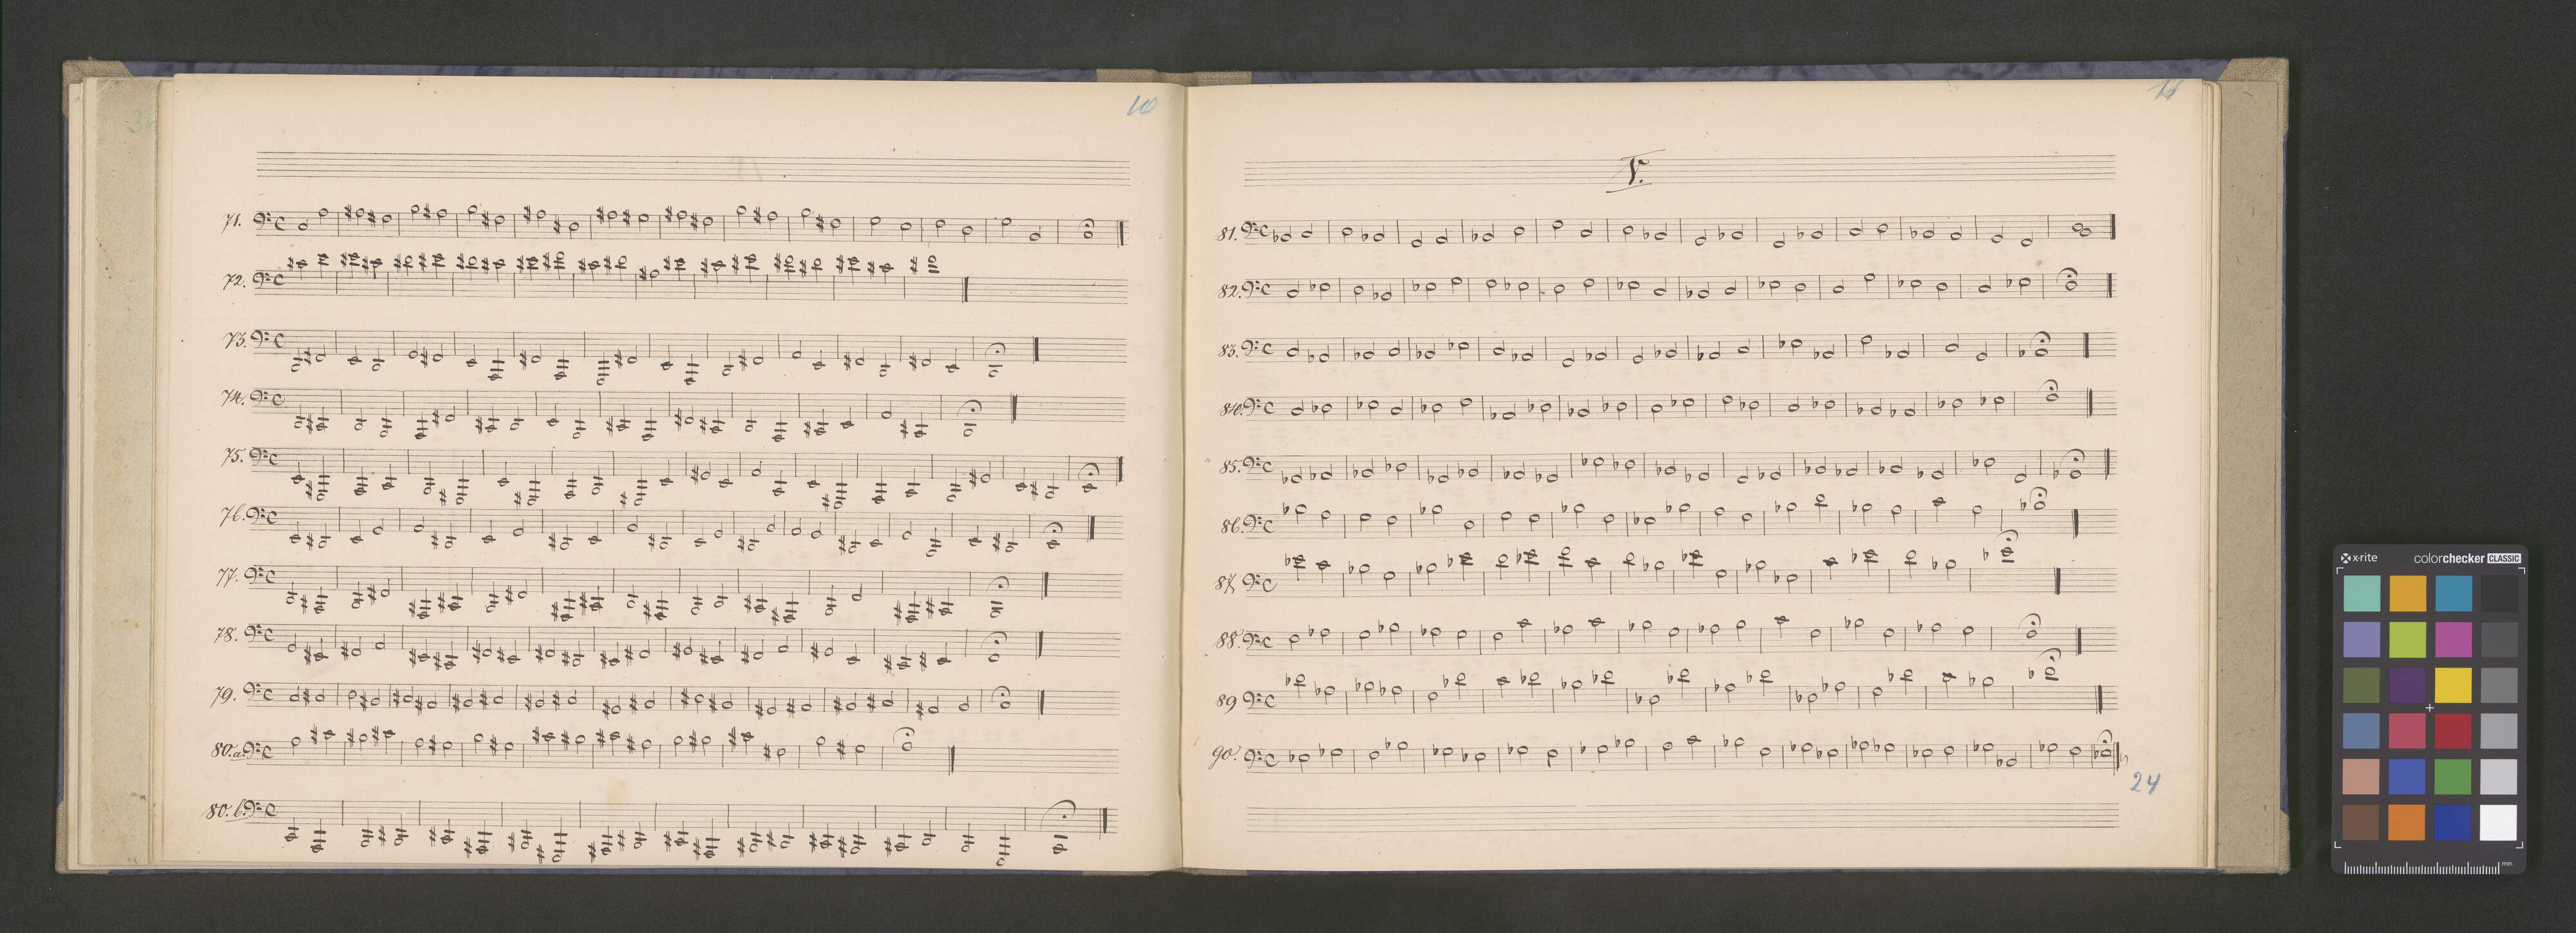 10
71.
72.
73.
74.
75.
76.
77.
78.
79.
80.a
80.b.
11
V.
81.
82.
83.
84.
85.
86.
87
88.
89
90.
24
x-rite
colorchecker CLASSIC
mm